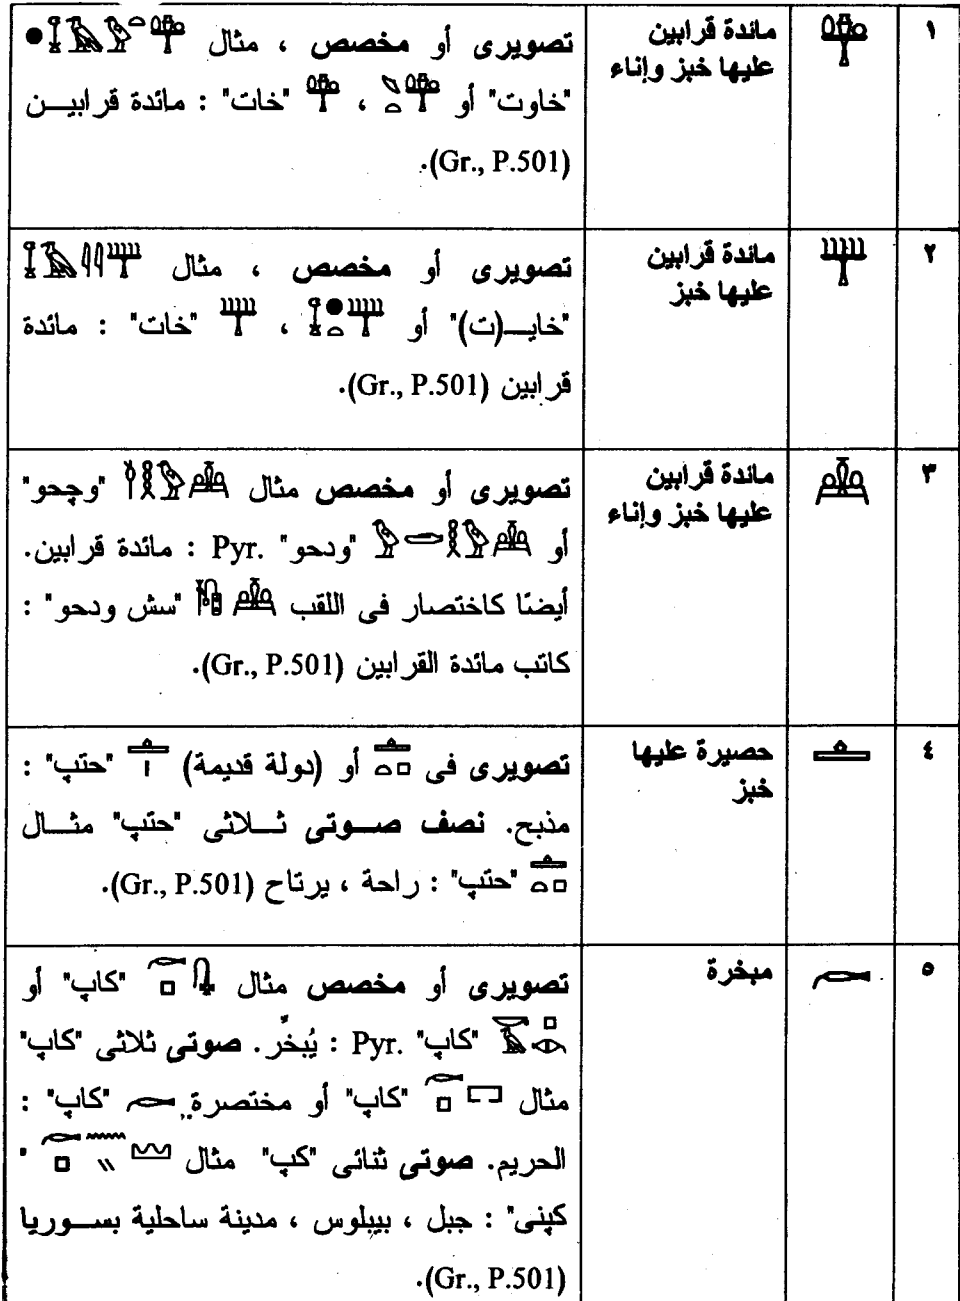 ١ مائدة قرابين تصويرى أو مخصص ، مثال
عليها خبز وإناء "خاوت" أو ، "خات" : مائدة قرابيــن
(Gr., P.501).
٢ مائدة قرابين تصويرى أو مخصص ، مثال
عليها خبز "خايــ(ت)" أو ، "خات" : مائدة
قرابين (Gr., P.501).
٣ مائدة قرابين تصويرى أو مخصص مثال "وچحو"
عليها خبز وإناء أو "ودحو" Pyr. : مائدة قرابين.
أيضًا كاختصار فى اللقب "سش ودحو" :
كاتب مائدة القرابين (Gr., P.501).
٤ حصيرة عليها تصويرى فى أو (دولة قديمة) "حتپ" :
خبز مذبح. نصف صــوتى ثــلاثى "حتپ" مثــال
"حتپ" : راحة ، يرتاح (Gr., P.501).
٥ مبخرة تصويرى أو مخصص مثال "كاپ" أو
"كاپ" Pyr. : يُبخَّر. صوتى ثلاثى "كاپ"
مثال "كاپ" أو مختصرة "كاپ" :
الحريم. صوتى ثنائى "كپ" مثال "
كپنى" : جبل ، بيبلوس ، مدينة ساحلية بســوريا
(Gr., P.501).